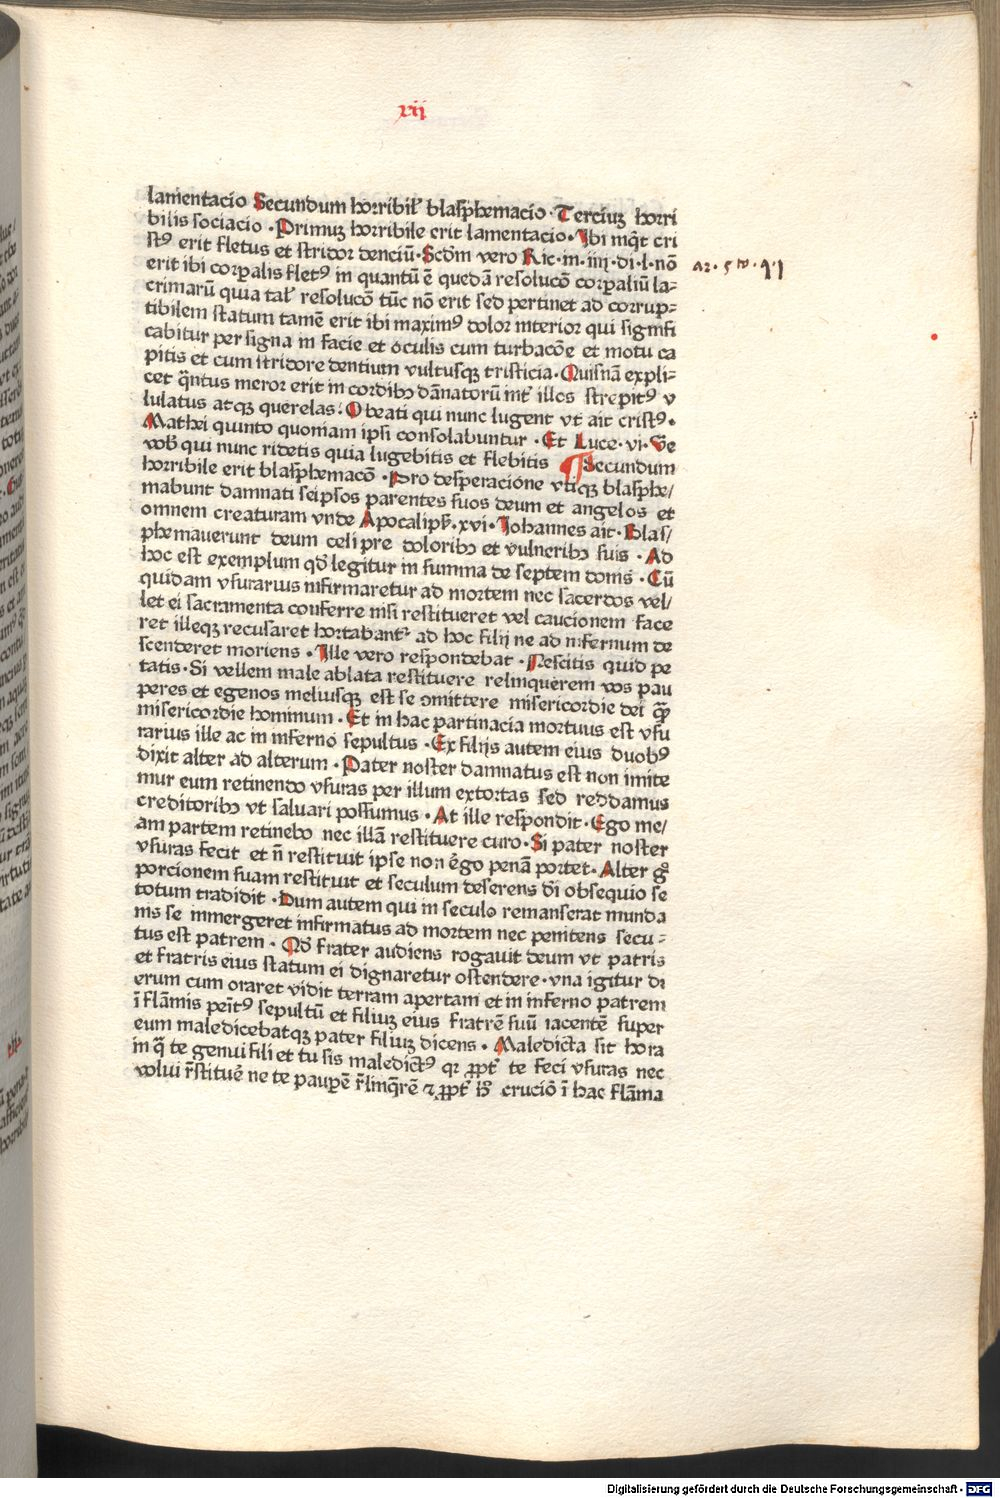 xvij
lamentacio Secundum horribil' blasphemacio · Terciuꝫ horri
bilis sociacio · Primuꝫ horribile erit lamentacio · Ibi inq̄t cri
stꝰ erit fletus et stridor denciū · Scdm̄ vero Ric · in · iiij · di · l · nō
ar · 5to · q̄ · j
erit ibi corꝑalis fletꝰ in quantū ē quedā resolucō corꝑaliū la⸗
crimarū quia tal' resolucō tūc nō erit sed pertinet ad corrup⸗
tibilem statum tamē erit ibi maximꝰ dolor interior qui signifi
cabitur per signa in facie et oculis cum turbacōe et motu ca
pitis et cum stridore dentium vultusqꝫ tristicia · Quisnā expli⸗
cet q̄ntus meror erit in cordibꝫ dānatorū int' illos strepitꝰ v
lulatus atqꝫ querelas · O beati qui nunc lugent vt ait cristꝰ ·
Mathei quinto quoniam ipsi consolabuntur · Et Luce · vi · Ve
vob' qui nunc ridetis quia lugebitis et flebitis ¶ Secundum
horribile erit blasphemacō · Pro desperacione vtiqꝫ blasphe/
mabunt damnati seipsos parentes suos deum et angelos et
omnem creaturam vnde Apocalips' · xvi · Johannes ait · Blas/
phemauerunt deum celi pre doloribꝫ et vulneribꝫ suis · Ad
hoc est exemplum qd̄ legitur in summa de septem donis · Cū
quidam vsurarius infirmaretur ad mortem nec sacerdos vel/
let ei sacramenta conferre nisi restitueret vel caucionem face
ret illeqꝫ recusaret hortabant' ad hoc filij ne ad infernum de
scenderet moriens · Ille vero respondebat · Nescitis quid pe
tatis · Si vellem male ablata restituere relinquerem vos pau
peres et egenos meliusqꝫ est se ꝯmittere misericordie dei qꝫ̄
misericordie hominum · Et in hac partinacia mortuus est vsu
rarius ille ac in inferno sepultus · Ex filijs autem eius duobꝰ
dixit alter ad alterum · Pater noster damnatus est non imite
mur eum retinendo vsuras per illum extortas sed reddamus
creditoribꝫ vt saluari possumus · At ille respondit · Ego me/
am partem retinebo nec illā restituere curo · Si pater noster
vsuras fecit et n̄ restituit ipse non ego penā portet · Alter g°
porcionem suam restituit et seculum deserens dī obsequio se
totum tradidit · Dum autem qui in seculo remanserat munda
nis se inmergeret infirmatus ad mortem nec penitens secu⸗
tus est patrem · Qd̄ frater audiens rogauit deum vt patris
et fratris eius statum ei dignaretur ostendere · vna igitur di
erum cum oraret vidit terram apertam et in inferno patrem
ī flāmis peītꝰ sepultū et filiuꝫ eius fratrē suū iacentē super
eum maledicebatqꝫ pater filiuꝫ dicens · Maledicta sit hora
in q̄ te genui fili et tu sis maledictꝰ qꝛ ꝓpt' te feci vsuras nec
volui r̄stituē ne te paupē r̄linq̄rē ⁊ ꝓpt' h̄ cruciō ī hac flāma
Digitalisierung gefördert durch die Deutsche Forschungsgemeinschaft - DFG